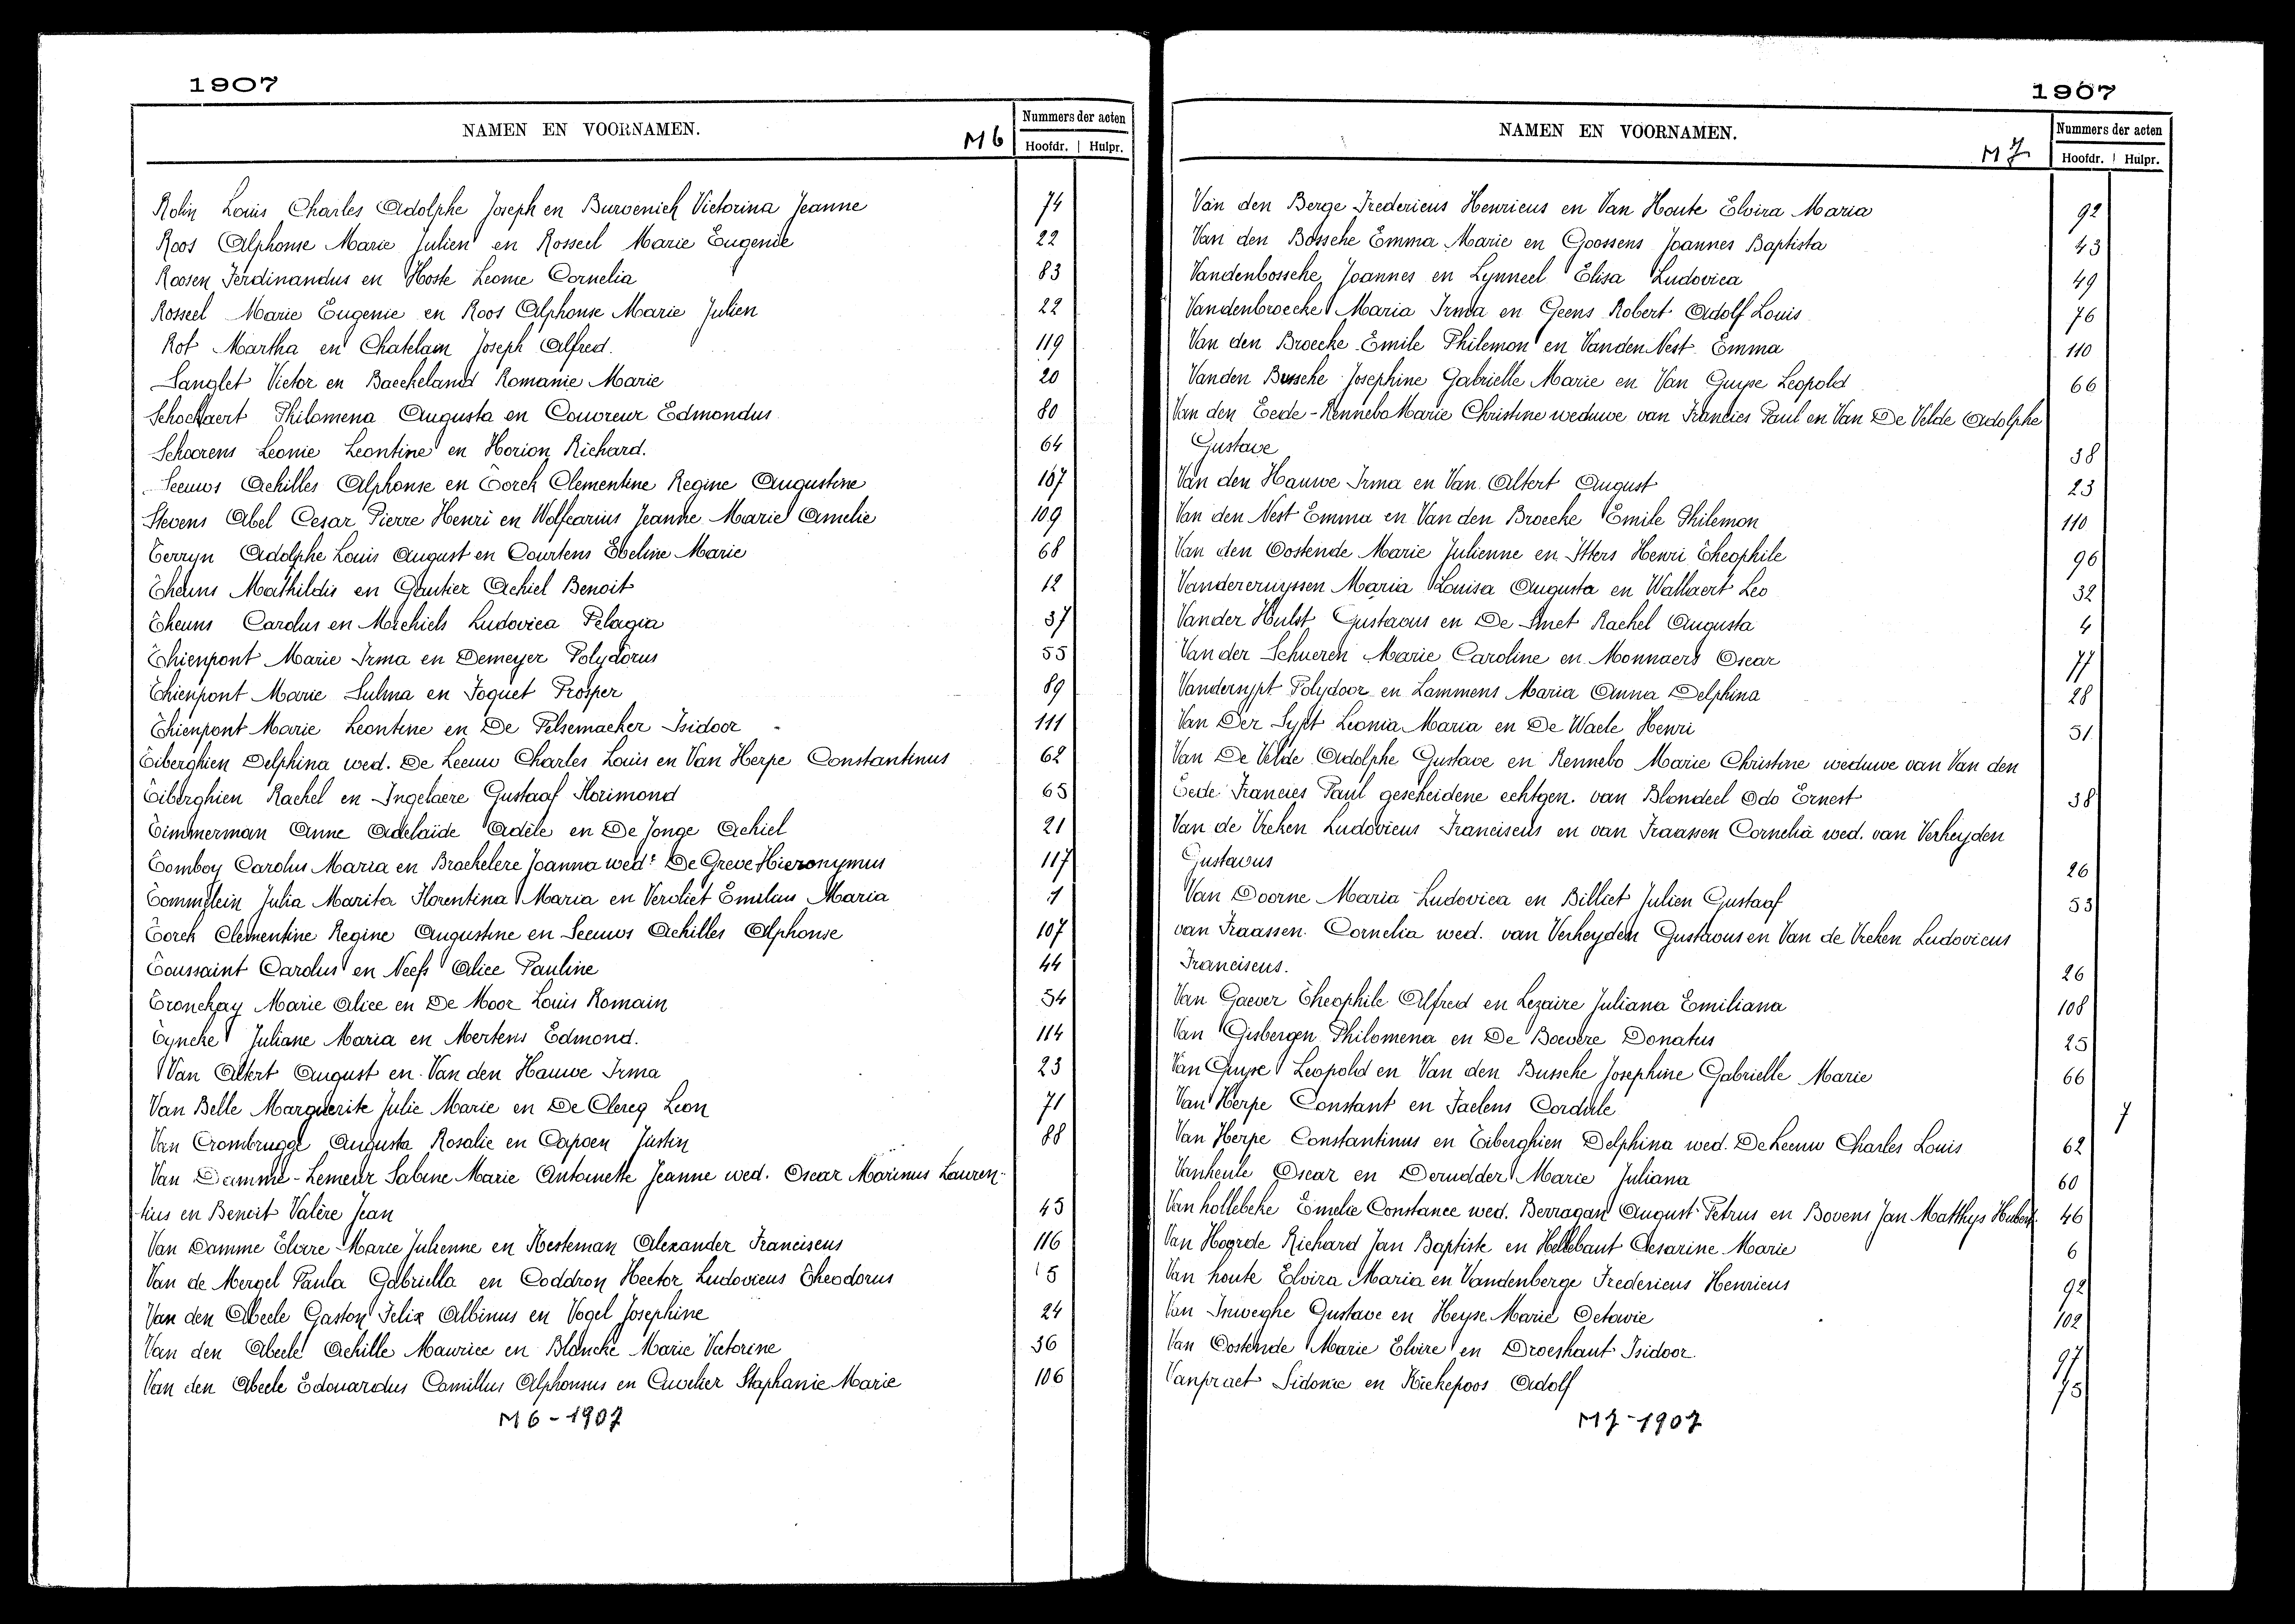 1907
NAMEN EN VOORNAMEN.
M6
Nummers der acten
Hoofdr. | Hulpr.
Rolin Louis Charles Adolphe Joseph en Burvenich Victorina Jeanne 74
Roos Alphonse Marie Julien en Rosseel Marie Eugenie 22
Roosen Ferdinandus en Hoste Leonie Cornelia 83
Rosseel Marie Eugenie en Roos Alphonse Marie Julien 22
Rot Martha en Chatelain Joseph Alfred. 119
Sanglet Victor en Baeckeland Romanie Marie 20
Schockaert Philomena Augusta en Couvreur Edmondus 80
Schoorens Leonie Leontine en Horion Richard. 64
Seeuws Achilles Alphonse en Torck Clementine Regine Augustine 107
Stevens Abel Cesar Pierre Henri en Wolfcarius Jeanne Marie Amelie 109
Terryn Adolphe Louis August en Courtens Eveline Marie 68
Theuns Mathildis en Gautier Achiel Benoit 12
Theuns Carolus en Michiels Ludovica Pelagia 37
Thienpont Marie Irma en Demeyer Polydorus 55
Thienpont Marie Sulma en Foquet Prosper 89
Thienpont Marie Leontine en De Pelsemaeker Isidoor 111
Tiberghien Delphina wed. De Leeuw Charles Louis en Van Herpe Constantinus 62
Tiberghien Rachel en Ingelaere Gustaaf Florimond 65
Timmerman Anne Adelaïde Adèle en De Jonge Achiel 21
Tomboy Carolus Maria en Brackelere Joanna wed: De Greve Hieronymus 117
Tommelein Julia Marita Florentina Maria en Vervliet Emilius Maria 1
Torck Clementine Regine Augustine en Seeuws Achilles Alphonse 107
Toussaint Carolus en Neefs Alice Pauline 44
Tronckay Marie Alice en De Moor Louis Romain 54
Tyncke Juliane Maria en Mertens Edmond. 114
Van Altert August en Van den Hauwe Irma 23
Van Belle Marguerite Julie Marie en De Clercq Leon 71
Van Crombrugge Augusta Rosalie en Capoen Justin 88
Van Damme-Lemeur Sabine Marie Antoinette Jeanne wed. Oscar Marinus Lauren-
tius en Benoit Valère Jean 45
Van Damme Elvire Marie Julienne en Kesteman Alexander Franciscus 116
Van de Mergel Paula Gabriella en Coddron Hector Ludovicus Theodorus 15
Van den Abeele Gaston Felix Albinus en Vogel Josephine 24
Van den Abeele Achille Maurice en Blancke Marie Victorine 36
Van den Abeele Edouardus Camillus Alphonsus en Cuvelier Staphanie Marie 106
M6-1907
1907
NAMEN EN VOORNAMEN.
M7
Nummers der acten
Hoofdr. | Hulpr.
Van den Berge Fredericus Henricus en Van Houte Elvira Maria 92
Van den Bossche Emma Marie en Goossens Joannes Baptista 43
Vandenbossche Joannes en Lynneel Elisa Ludovica 49
Vandenbroecke Maria Irma en Geens Robert Adolf Louis 76
Van den Broecke Emile Philemon en Vanden Nest Emma 110
Vanden Bussche Josephine Gabrielle Marie en Van Guyse Leopold 66
Van den Eede-Rennebo Marie Christine weduwe van Francies Paul en Van De Velde Adolphe
Gustave 38
Van den Hauwe Irma en Van Altert August 23
Van den Nest Emma en Van den Broecke Emile Philemon 110
Van den Oostende Marie Julienne en Itters Henri Theophile 96
Vandercruyssen Maria Louisa Augusta en Wallaert Leo 32
Vander Hulst Gustavus en De Smet Rachel Augusta 4
Van der Schueren Marie Caroline en Monnaers Oscar 77
Vandersypt Polydoor en Lammens Maria Anna Delphina 28
Van Der Sypt Leonia Maria en De Waele Henri 51
Van De Velde Adolphe Gustave en Rennebo Marie Christine weduwe van Van den
Eede Francies Paul gescheidene echtgen. van Blondeel Odo Ernest 38
Van de Vreken Ludovicus Franciscus en van Fraassen Cornelia wed. van Verheyden
Gustavus 26
Van Doorne Maria Ludovica en Billiet Julien Gustaaf 53
van Fraassen Cornelia wed. van Verheyden Gustavus en Van de Vreken Ludovicus
Franciscus. 26
Van Gaever Theophile Alfred en Lezaire Juliana Emiliana 108
Van Gisbergen Philomena en De Boevere Donatus 25
Van Guyse Leopold en Van den Bussche Josephine Gabrielle Marie 66
Van Herpe Constant en Faelens Cordule 7
Van Herpe Constantinus en Tiberghien Delphina wed. De Leeuw Charles Louis 62
Vanheule Oscar en Derudder Marie Juliana 60
Van hollebeke Emelie Constance wed. Berragan August Petrus en Bovens Jan Matthys Hubert 46
Van Hoorde Richard Jan Baptiste en Hellebaut Cesarine Marie 6
Van houte Elvira Maria en Vandenberge Fredericus Henricus 92
Van Inweghe Gustave en Heyse Marie Octavie 102
Van Oostende Marie Elvire en Droeshaut Isidoor 97
Vanpraet Sidonie en Kiekepoos Adolf 75
M7-1907